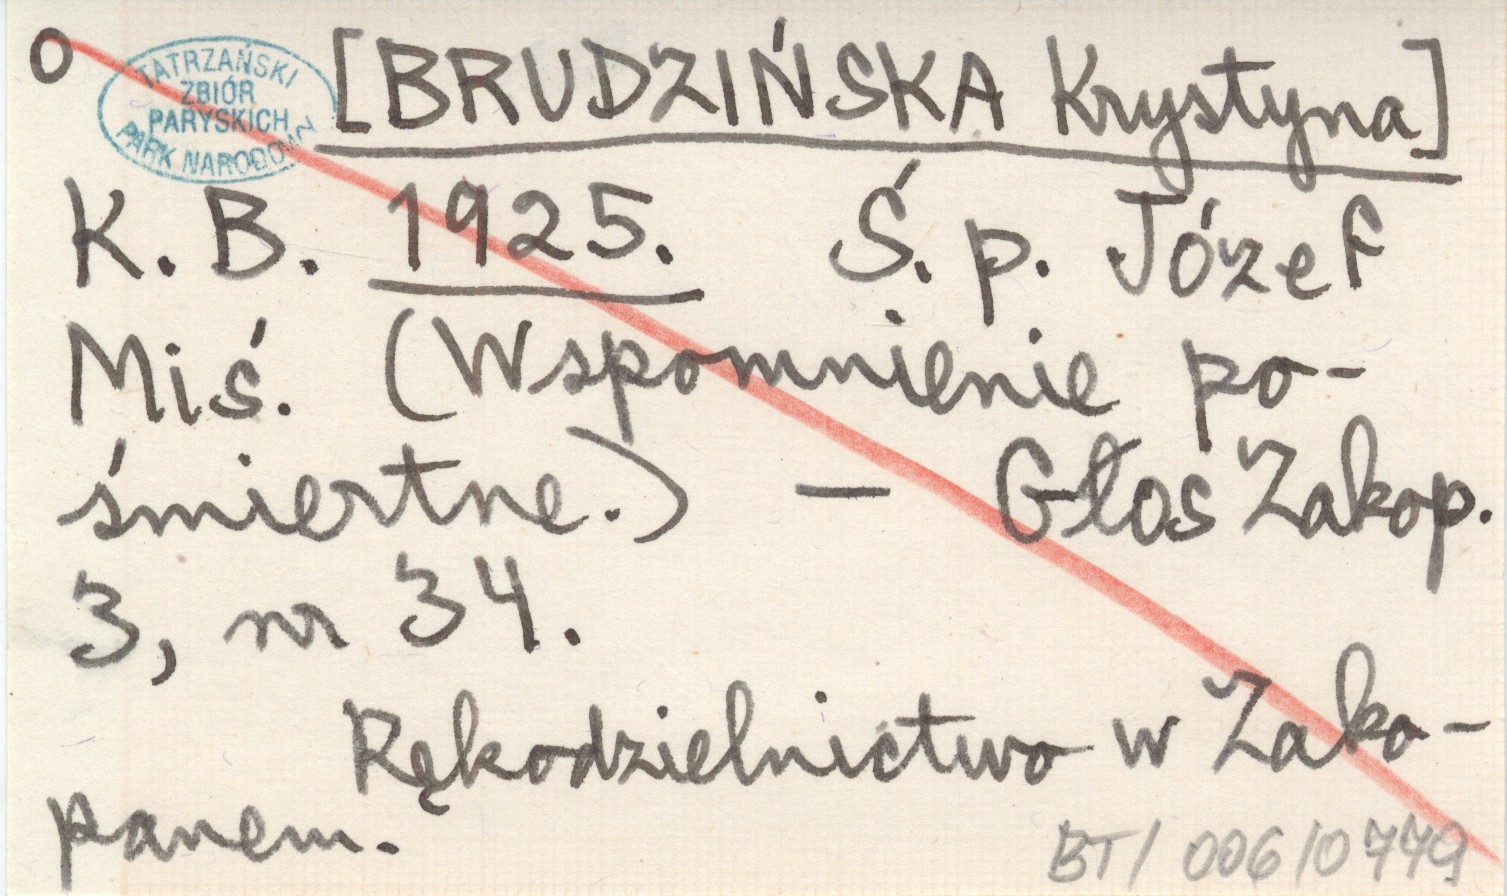 o
TATRZAŃSKI
ZBIÓR
PARYSKICH
PARK NARODOWY
[BRUDZIŃSKA Krystyna]
K. B. 1925. Ś. p. Józef
Miś. (Wspomnienie po-
śmiertne.) — Głos Zakop.
3, nr 34.
Rękodzielnictwo w Zako-
panem.
BT/ 006/0779